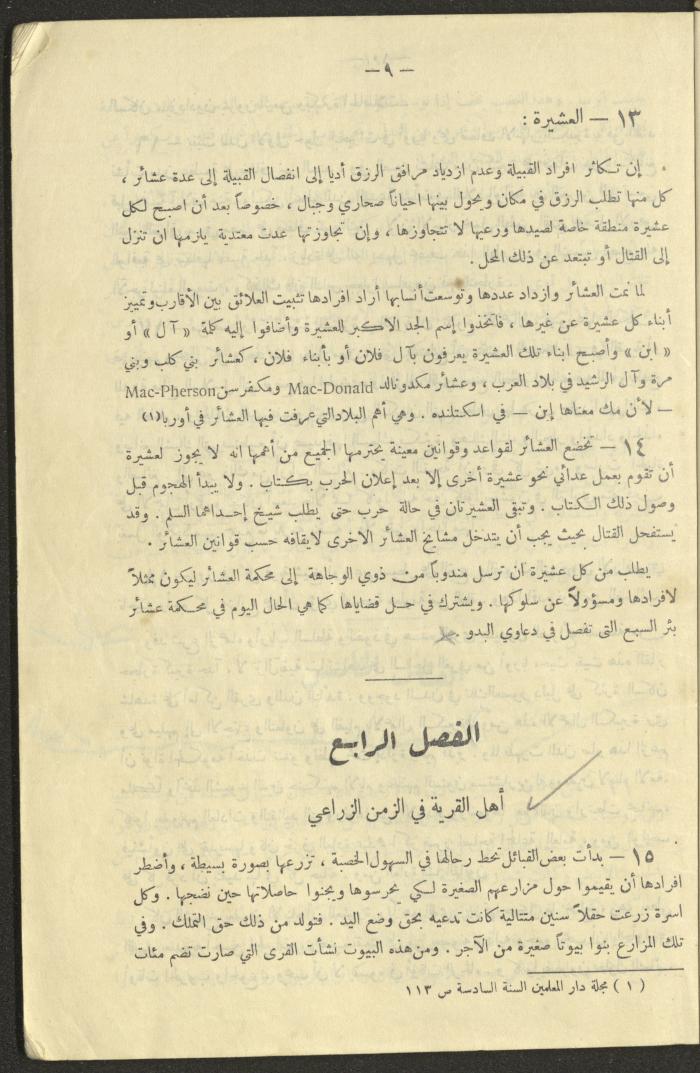 — ٩ —
١٣ — العشيرة :
إن تكاثر افراد القبيلة وعدم ازدياد مرافق الرزق أديا إلى انفصال القبيلة إلى عدة عشائر ،
كل منها تطلب الرزق في مكان ويحول بينها احياناً صحاري وجبال ، خصوصاً بعد أن اصبح لكل
عشيرة منطقة خاصة لصيدها ورعيها لا تتجاوزها ، وإن تجاوزتها عدت معتدية يلزمها ان تنزل
إلى القتال أو تبتعد عن ذلك المحل .
لما نمت العشائر وازداد عددها وتوسعت أنسابها أراد افرادها تثبيت العلائق بين الأقارب وتمييز
أبناء كل عشيرة عن غيرها ، فاتخذوا إسم الجد الاكبر للعشيرة وأضافوا إليه كلمة « آل » أو
« ابن » وأصبح ابناء تلك العشيرة يعرفون بآل فلان أو بأبناء فلان ، كعشائر بني كلب وبني
مرة وآل الرشيد في بلاد العرب ، وعشائر مكدونالد Mac-Donald ومكفرسن Mac-Pherson
— لأن مك معناها إبن — في اسكتلنده . وهي أهم البلاد التي عرفت فيها العشائر في أوربا (١)
١٤ — تخضع العشائر لقواعد وقوانين معينة يحترمها الجميع من أهمها انه لا يجوز لعشيرة
أن تقوم بعمل عدائي نحو عشيرة أخرى إلا بعد إعلان الحرب بكتاب . ولا يبدأ الهجوم قبل
وصول ذلك الكتاب . وتبقى العشيرتان في حالة حرب حتى يطلب شيخ إحداهما السلم . وقد
يستفحل القتال بحيث يجب أن يتدخل مشايخ العشائر الاخرى لايقافه حسب قوانين العشائر .
يطلب من كل عشيرة ان ترسل مندوباً من ذوي الوجاهة إلى محكمة العشائر ليكون ممثلاً
لافرادها ومسؤولاً عن سلوكها . ويشترك في حل قضاياها كما هي الحال اليوم في محكمة عشائر
بئر السبع التى تفصل في دعاوي البدو .
الفصل الرابع
أهل القرية في الزمن الزراعي
١٥ — بدأت بعض القبائل تحط رحالها في السهول الخصبة ، تزرعها بصورة بسيطة ، وأضطر
افرادها أن يقيموا حول مزارعهم الصغيرة لكي يحرسوها ويجنوا حاصلاتها حين نضجها . وكل
اسرة زرعت حقلاً سنين متتالية كانت تدعيه بحق وضع اليد . فتولد من ذلك حق التملك . وفي
تلك المزارع بنوا بيوتاً صغيرة من الآجر . ومن هذه البيوت نشأت القرى التي صارت تضم مئات
( ١ ) مجلة دار المعلمين السنة السادسة ص ١١٣